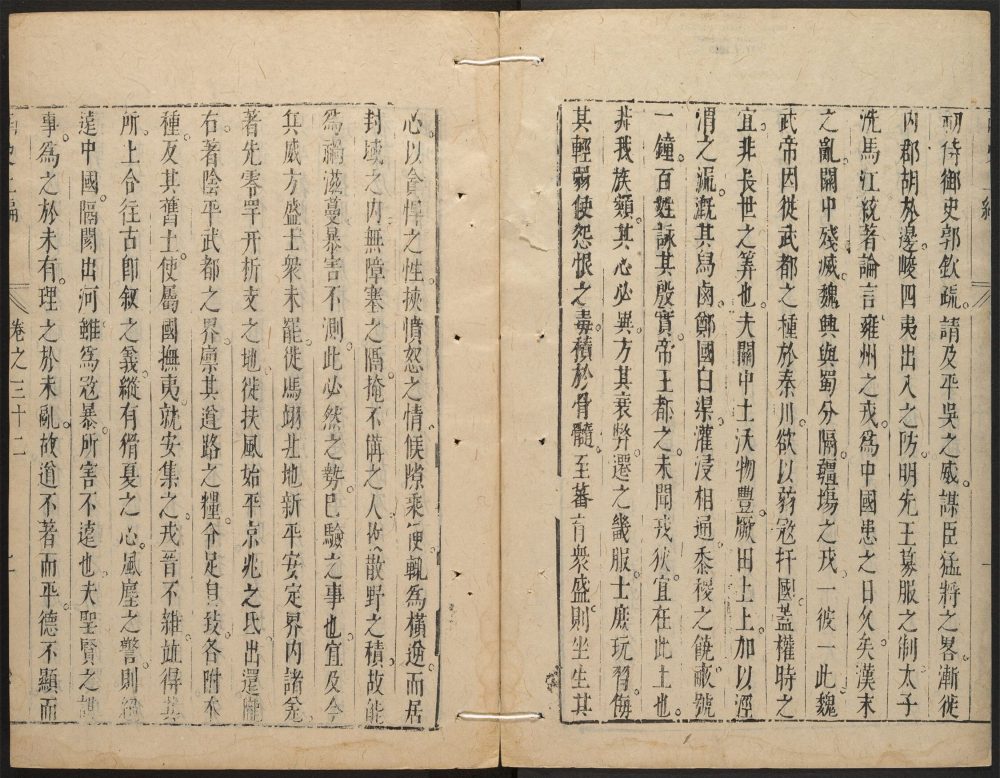 初侍御史郭欽疏請及平吳之威謀臣猛將之畧漸徙
內郡胡於邊峻四夷出入之防明先王荒服之制太子
洗馬江統著論言雍州之戎為中國患之日久矣漢末
之亂關中殘滅魏興與蜀分隔疆塲之戎一彼一此魏
武帝因徙武都之種於秦川欲以弱寇扞國蓋權時之
宜非長世之筭也夫關中土沃物豐厥田上上加以涇
渭之流溉其舄鹵鄭國白渠灌浸相通黍稷之饒畝號
一鐘百姓詠其殷實帝王都之未聞戎狄宜在此土也
非我族類其心必異方其衰弊遷之畿服士庶玩習侮
其輕弱使怨恨之毒積於骨髓至蕃育衆盛則坐生其
心以貪悍之性挾憤怒之情候隙乘便輒為橫逆而居
封域之內無障塞之隔掩不備之人收散野之積故能
為禍滋蔓暴害不測此必然之勢已驗之事也宜及今
兵威方盛士衆未罷徙馮翊北地新平安定界內諸羌
著先零罕幵析支之地徙扶風始平京兆之氐出還隴
右著陰平武都之界禀其道路之糧令足自致各附本
種反其舊土使屬國撫夷就安集之戎晉不雜並得其
所上合往古卽叙之義縱有猾夏之心風塵之警則絕
遠中國隔閡出河雖為寇暴所害不遠也夫聖賢之謀
事為之於未有理之於未亂故道不著而平德不顯而
卷之三十二